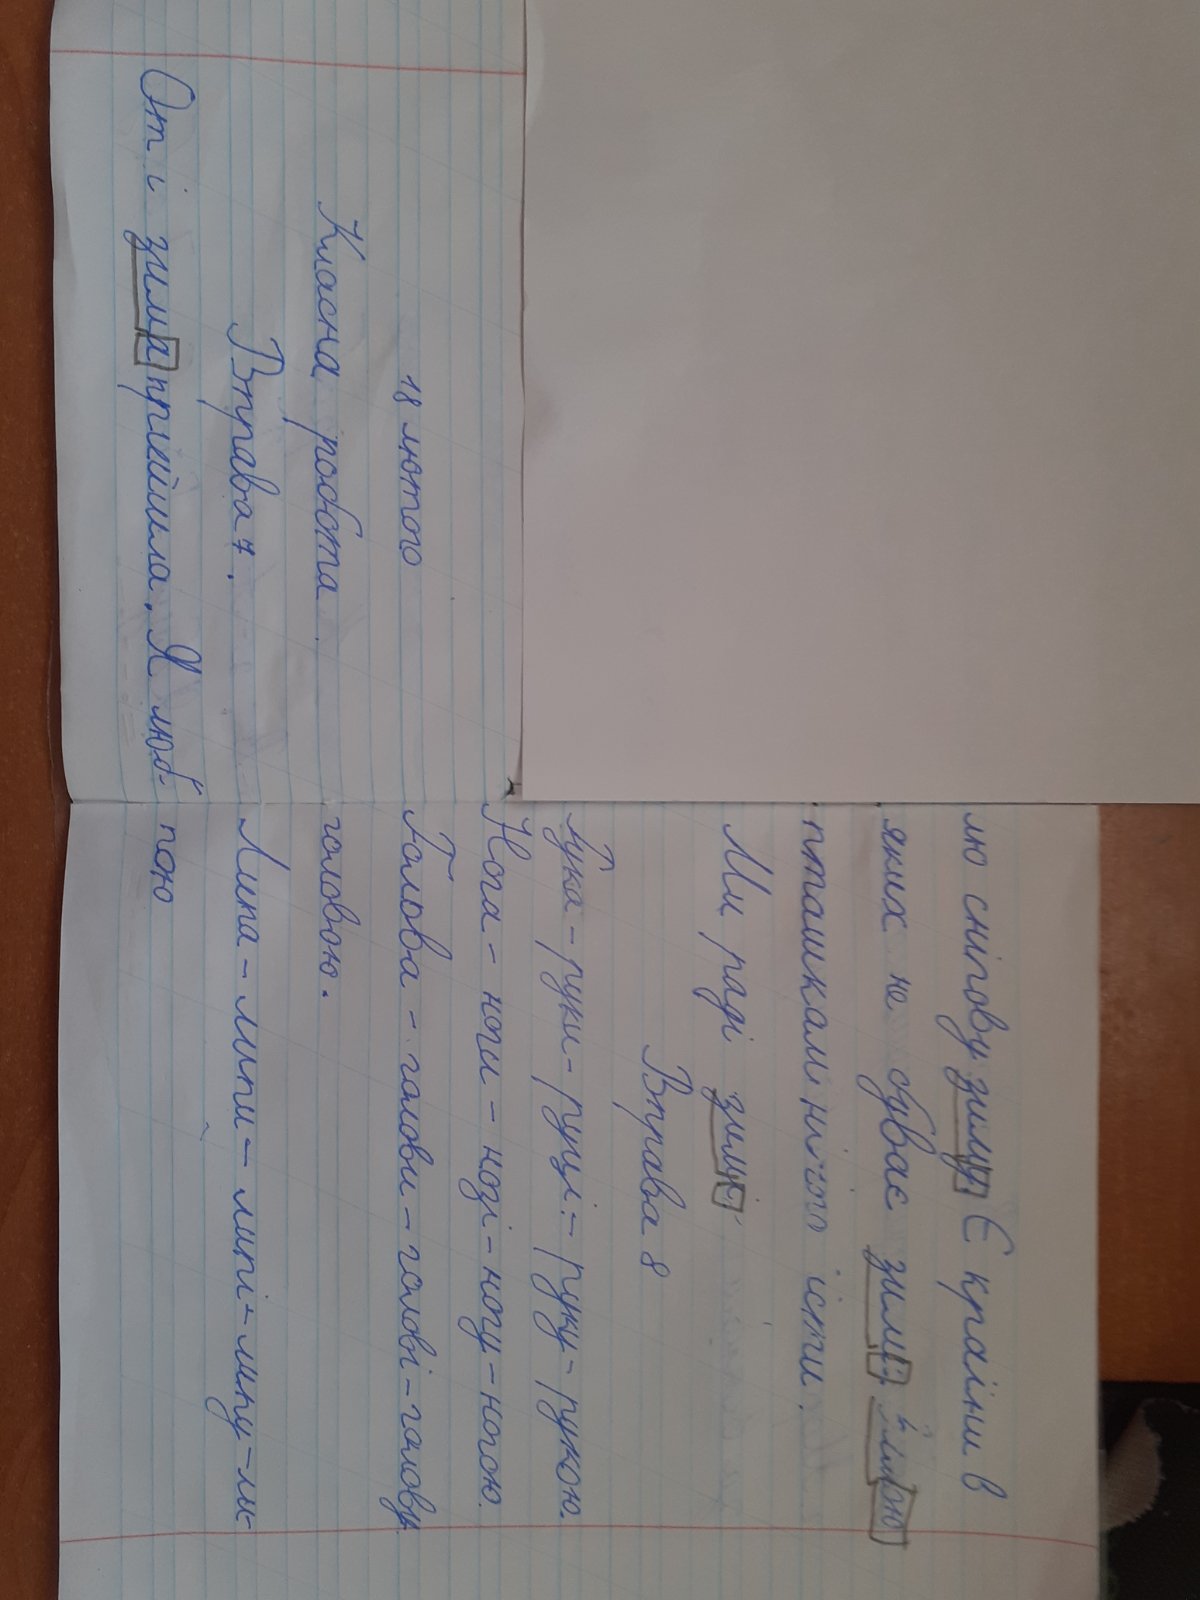 18 лютого
Класна робота
Вправа 7.
От і зима прийшла. Я люб-
лю снігову зиму Є країни в
яких не буває зими. Зимою
пташкам нічого їсти.
Ми раді зимі.
Вправа 8
Рука - руки - руці - руку - рукою.
Нога - ноги - нозі - ногу - ногою.
Голова - голови - голові - голову
головою.
Липа - липи - липі - липу - ли-
пою